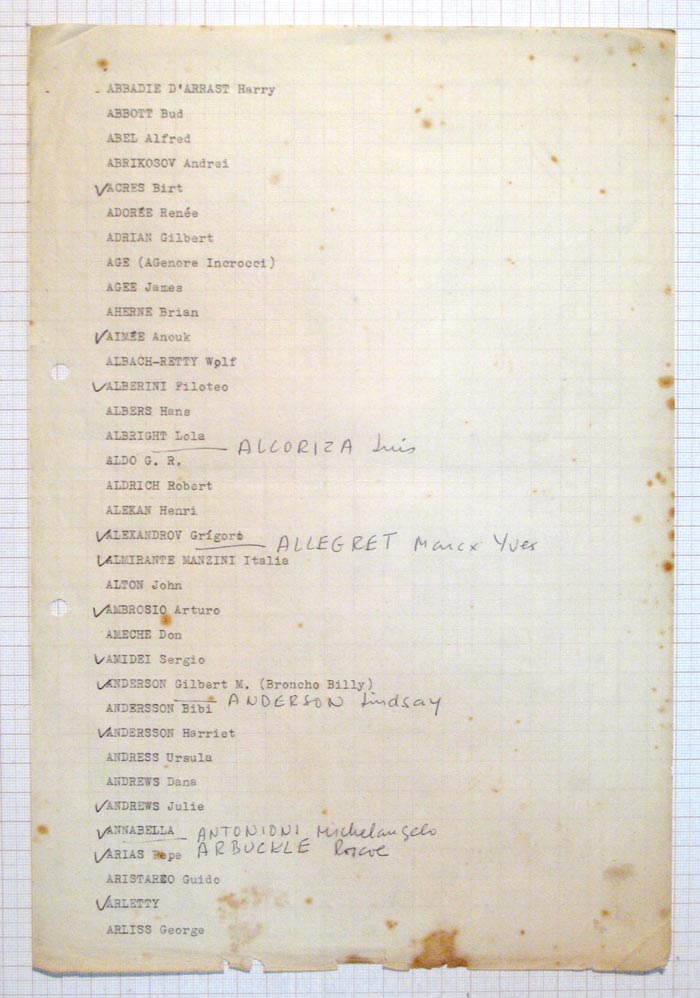 ABBADIE D'ARRAST Harry
ABBOTT Bud
ABEL Alfred
ABRIKOSOV Andrei
✓ACRES Birt
ADORÉE Renée
ADRIAN Gilbert
AGE (AGenore Incrocci)
AGEE James
AHERNE Brian
✓AIMÉE Anouk
ALBACH-RETTY Wolf
✓ALBERINI Filoteo
ALBERS Hans
ALBRIGHT Lola
ALCORIZA Luis
ALDO G. R.
ALDRICH Robert
ALEKAN Henri
✓ALEXANDROV Grigori
ALLEGRET Marc x Yves
✓ALMIRANTE MANZINI Italia
ALTON John
✓AMBROSIO Arturo
AMECHE Don
✓AMIDEI Sergio
✓ANDERSON Gilbert M. (Broncho Billy)
ANDERSON Lindsay
ANDERSSON Bibi
✓ANDERSSON Harriet
ANDRESS Ursula
ANDREWS Dana
✓ANDREWS Julie
✓ANNABELLA
ANTONIONI Michelangelo
ARBUCKLE Roscoe
✓ARIAS Pepe
ARISTARCO Guido
✓ARLETTY
ARLISS George